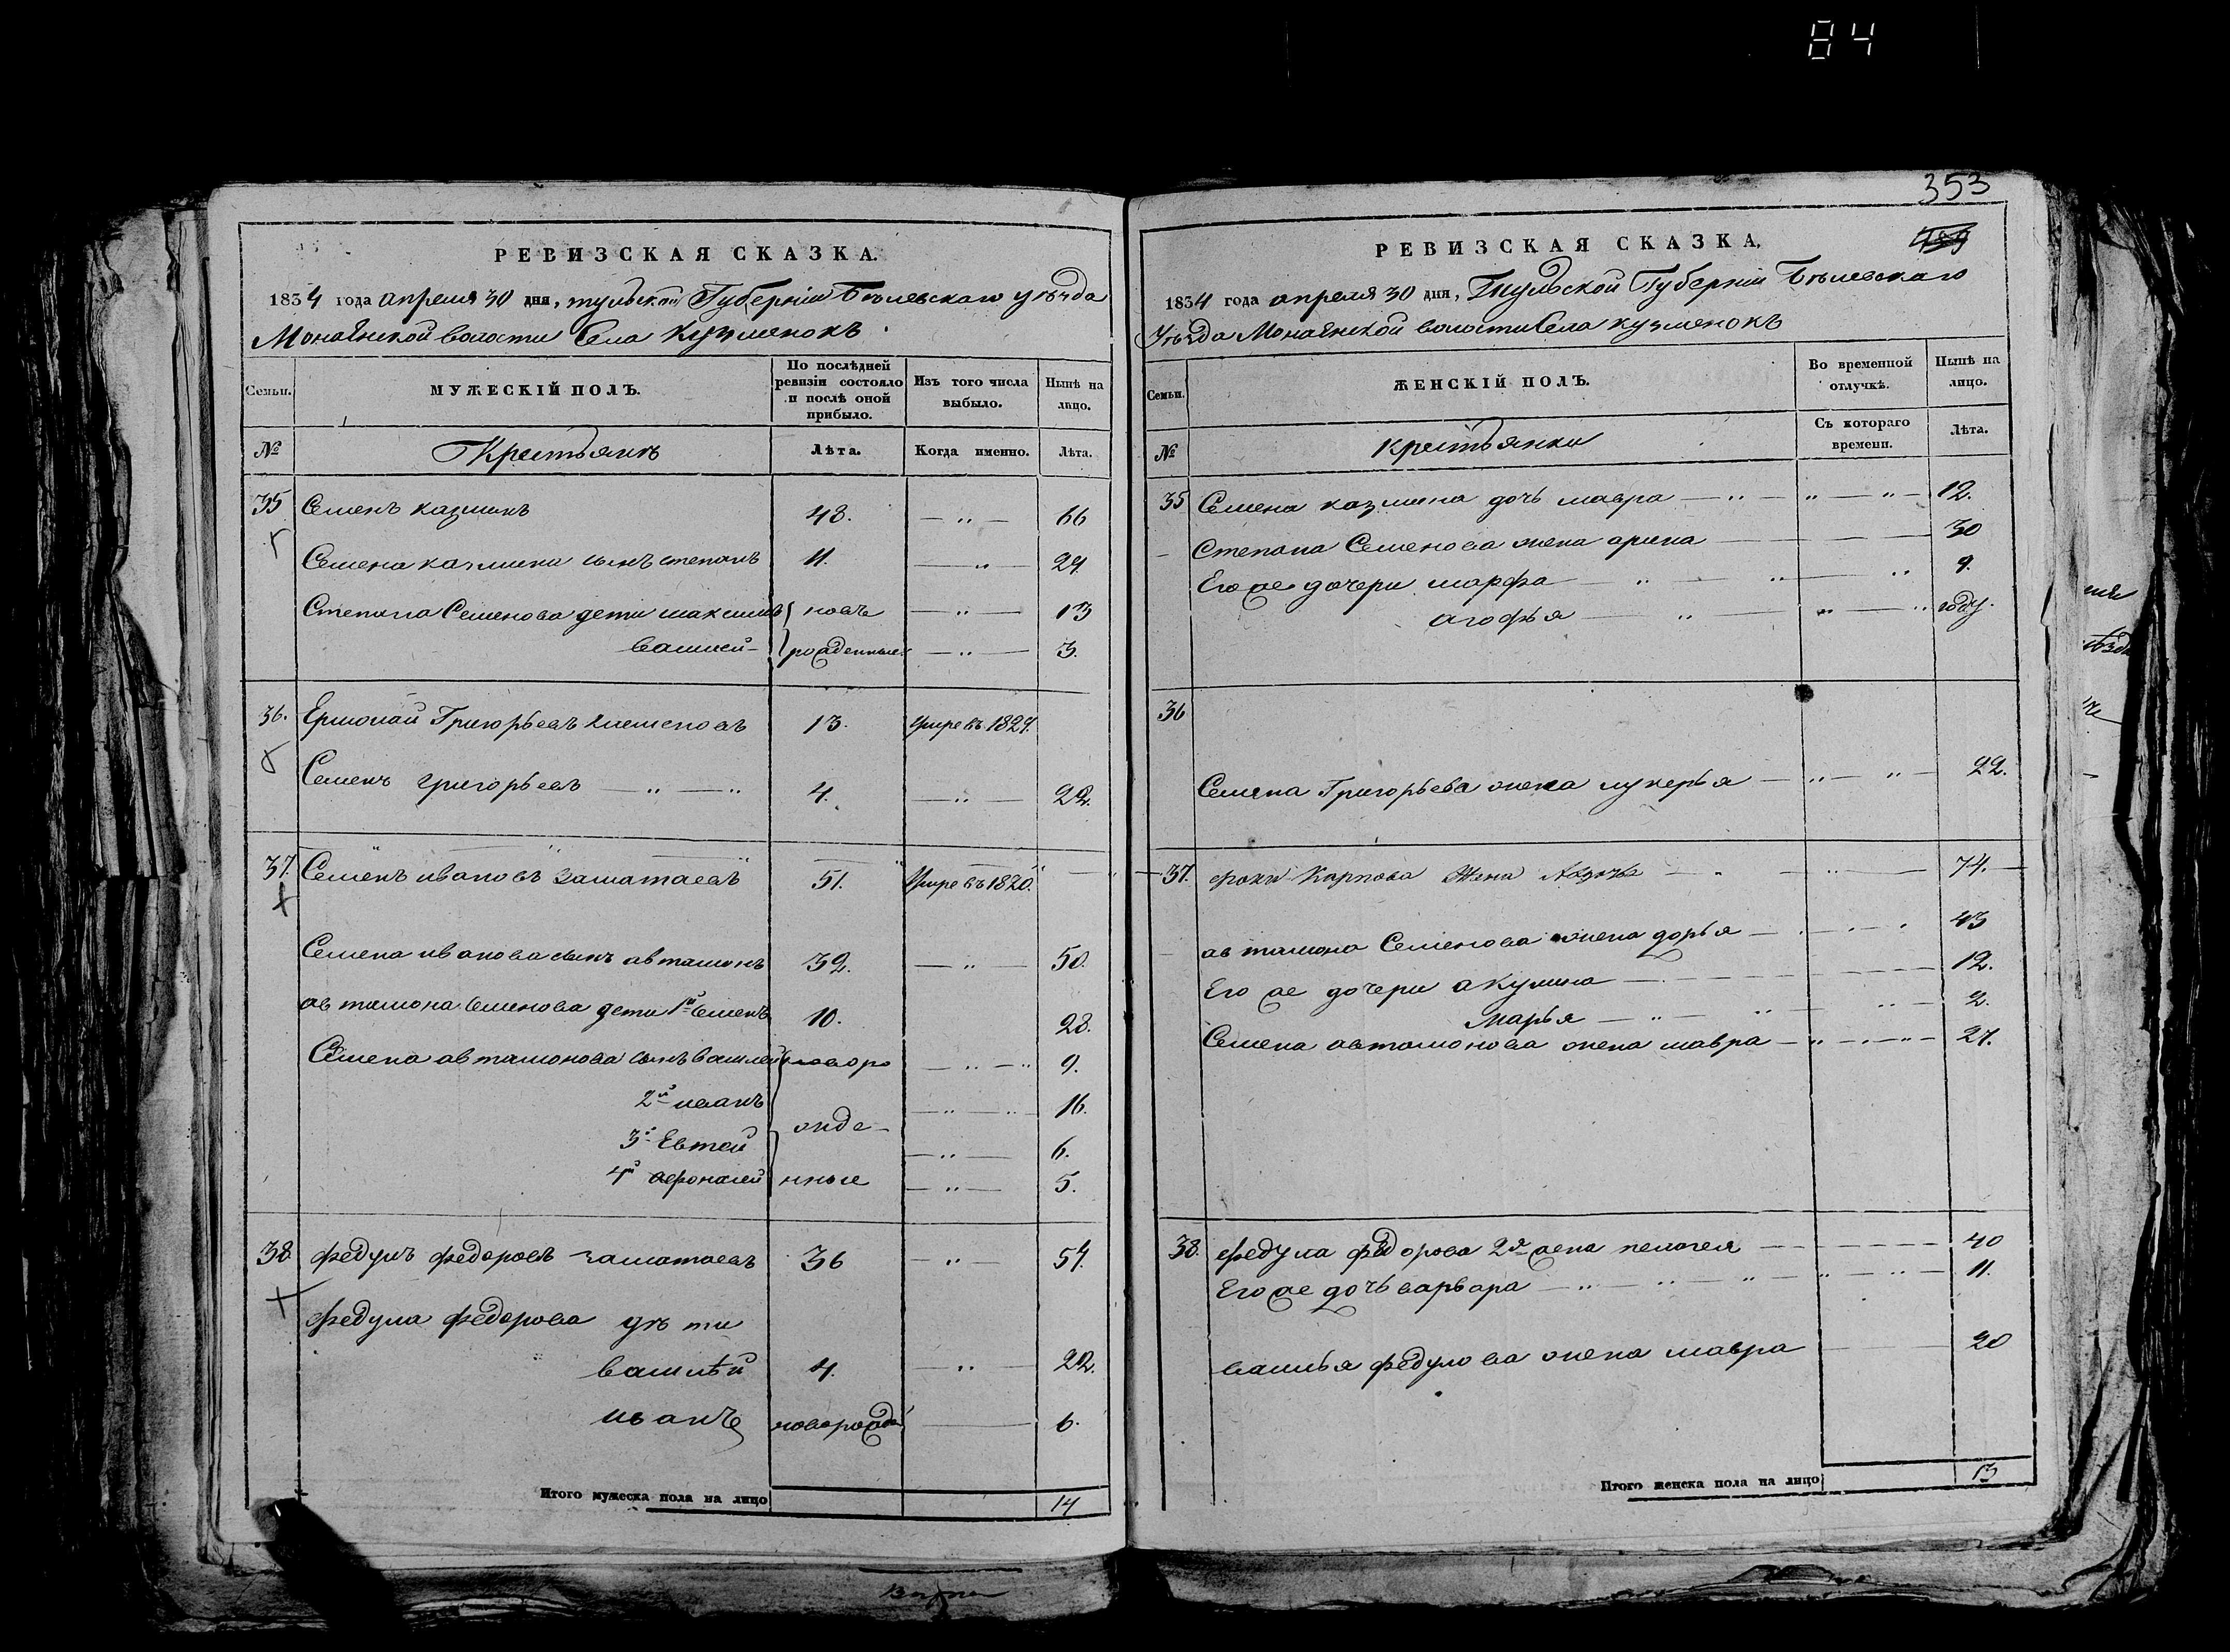 84
353
РЕВИЗСКАЯ СКАЗКА.
1834 года апреля 30 дня, тульской Губерніи Бѣлевскаго уѣзда
Монаѣнской волости Села Кузменокъ
Семьи.
МУЖЕСКІЙ ПОЛЪ.
По послѣдней ревизіи состояло и послѣ оной прибыло.
Изъ того числа выбыло.
Нынѣ на лицо.
№
Крестьянъ
Лѣта.
Когда именно.
Лѣта.
35 Семенъ казминъ 48. 66
Семена казмина сынъ степанъ 11. 29.
Степана Семенова дети максимъ ново 13
василей рожденные 3.
36. Ермолай Григорьевъ 13. умре въ 1827.
Семенъ григорьевъ 4. 22.
37. Семенъ ивановъ заматаевъ 51. Умре въ 1820.
Семена иванова сынъ автамонъ 32. 50.
автамона Семенова дети 1й Семенъ 10. 28.
Семена автамонова сынъ василей новоро 9.
2й иванъ 16.
жде
3й Евтей 6.
4й афонасей нные 5.
38. федулъ федоровъ заматаевъ 36 54.
федула федорова дѣти
василѣй 4. 22.
иванъ новорожд 6.
Итого мужеска пола на лицо 14
РЕВИЗСКАЯ СКАЗКА.
1834 года апреля 30 дня, Тульской Губерніи Бѣлевскаго
Уѣзда Монаѣнской волости Села кузменокъ
Семьи.
ЖЕНСКІЙ ПОЛЪ.
Во временной отлучкѣ.
Нынѣ на лицо.
№
крестьянки
Съ котораго времени.
Лѣта.
35 Семена казмина дочь мавра 12.
Степана Семенова жена арина 30
Его же дочери марфа 9.
агофья году.
36
Семена Григорьева жена лукерья 22.
37. Карпова Жена 74.
автамона Семенова жена дорья 43
Его же дочери акулина 12.
Марья 2.
Семена автамонова жена мавра 27.
38. федула федорова 2я жена пелагея 40
Его же дочь варвара 11.
василья федулова жена мавра 20
Итого женска пола на лицо 13